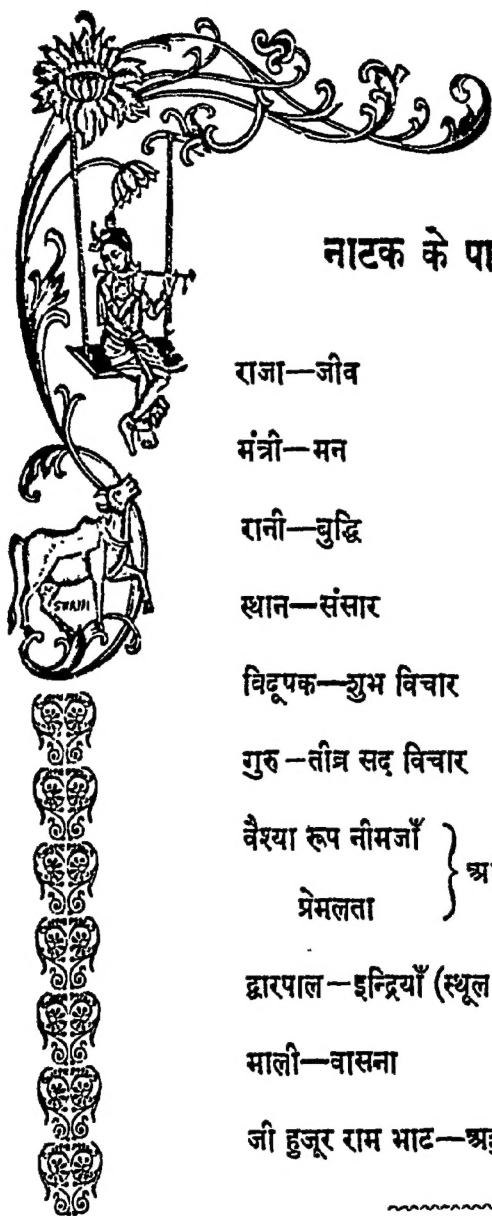 नाटक के
राजा—जीव
मंत्री—मन
रानी—बुद्धि
SWAMI
स्थान—संसार
विदूषक—शुभ विचार
गुरु—तीव्र सद विचार
वैश्या रूप नीमजाँ
प्रेमलता
द्वारपाल—इन्द्रियाँ (स्थूल
माली—वासना
जी हुजूर राम भाट—